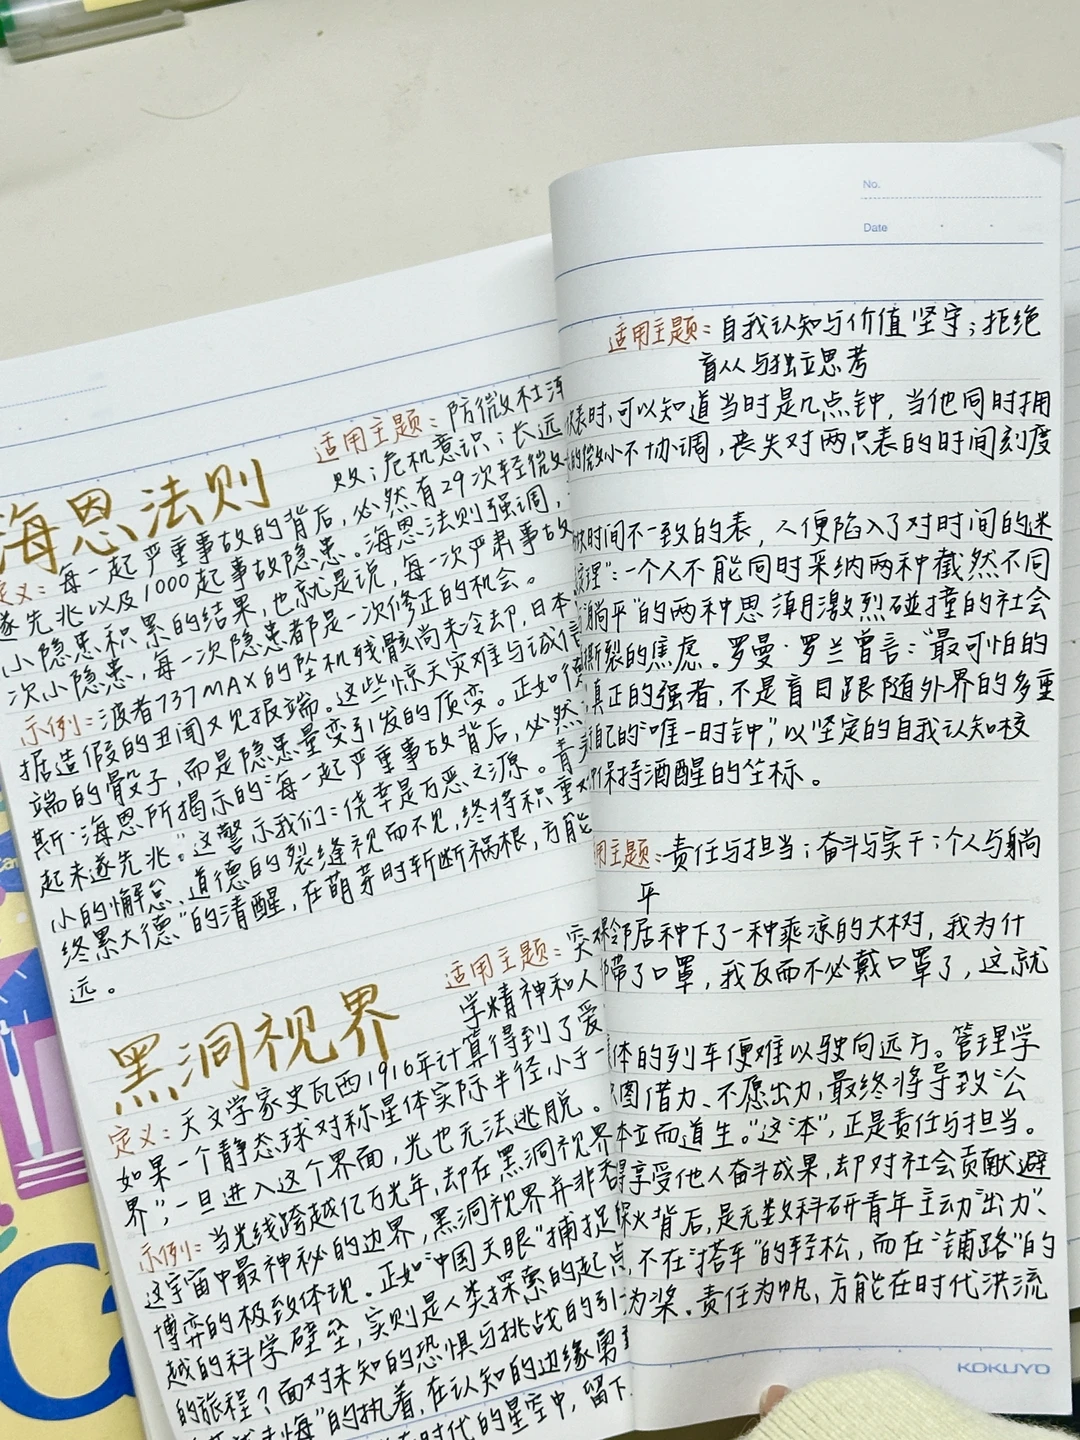 适用主题：防微杜渐
败；危机意识；长远
海恩法则
定义：每一起严重事故的背后，必然有29次轻微
遂先兆以及1000起事故隐患。海恩法则强调，
小隐患积累的结果，也就是说，每一次严肃事故
次小隐患，每一次隐患都是一次修正的机会。
示例：波音737MAX的坠机残骸尚未冷却，日本
据造假的丑闻又见报端。这些惊天灾难与诚信
端的骰子，而是隐患量变引发的质变。正如德
斯·海恩所揭示的"每一起严重事故背后，必然
起未遂先兆。"这警示我们：侥幸是万恶之源。
小的懈怠、道德的裂缝视而不见，终将积重
终累大德"的清醒，在萌芽时斩断祸根，方能
远。
适用主题：突
学精神和人
黑洞视界
定义：天文学家史瓦西1916年计算得到了爱
如果一个静态球对称星体实际半径小于一
界"，一旦进入这个界面，光也无法逃脱。
示例：当光线跨越亿万光年，却在黑洞视界
这宇宙中最神秘的边界，黑洞视界并非
博弈的极致体现。正如"中国天眼"捕捉
越的科学壁垒，实则是人类探索的起点，
的旅程？面对未知的恐惧与挑战的引
悔"的执着，在认知的边缘勇
时代的星空中，留下
No.
Date
适用主题：自我认知与价值坚守；拒绝
盲从与独立思考
表时，可以知道当时是几点钟，当他同时拥
的微小不协调，丧失对两只表的时间刻度
块时间不一致的表，人便陷入了对时间的迷
定理"：一个人不能同时采纳两种截然不同
"躺平"的两种思潮激烈碰撞的社会
撕裂的焦虑。罗曼·罗兰曾言："最可怕的
真正的强者，不是盲目跟随外界的多重
自己的"唯一时钟"，以坚定的自我认知校
保持清醒的坐标。
用主题：责任与担当；奋斗与实干；个人与躺
平
邻居种下了一种乘凉的大树，我为什
都带了口罩，我反而不必戴口罩了，这就
体的列车便难以驶向远方。管理学
只图借力、不愿出力，最终将导致"公
本立而道生。"这"本"，正是责任与担当。
享受他人奋斗成果，却对社会贡献避
探火背后，是无数科研青年主动"出力"、
不在"搭车"的轻松，而在"铺路"的
为桨。责任为帆，方能在时代洪流
KOKUYO